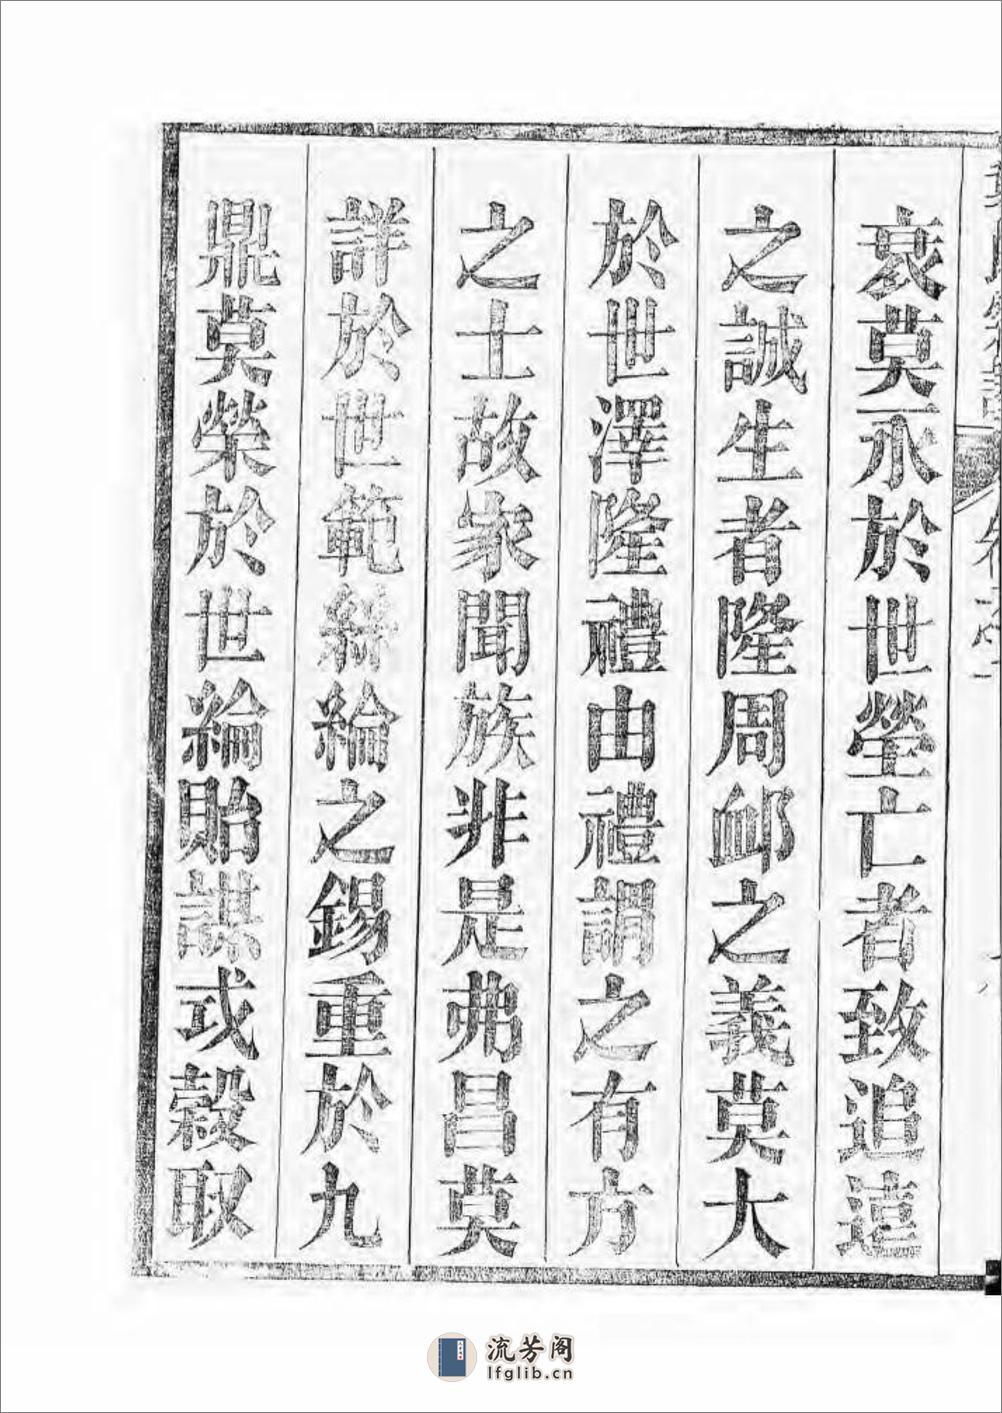 衰莫丞於世塋亡者致追遠
之誠生者隆周卹之義莫大
於世澤隆禮由禮謂之有方
之士故家聞族非是弗昌莫
詳於世範絲綸之錫重於九
鼎莫榮於世綸貽謀或穀取
流芳阁
lfglib.cn